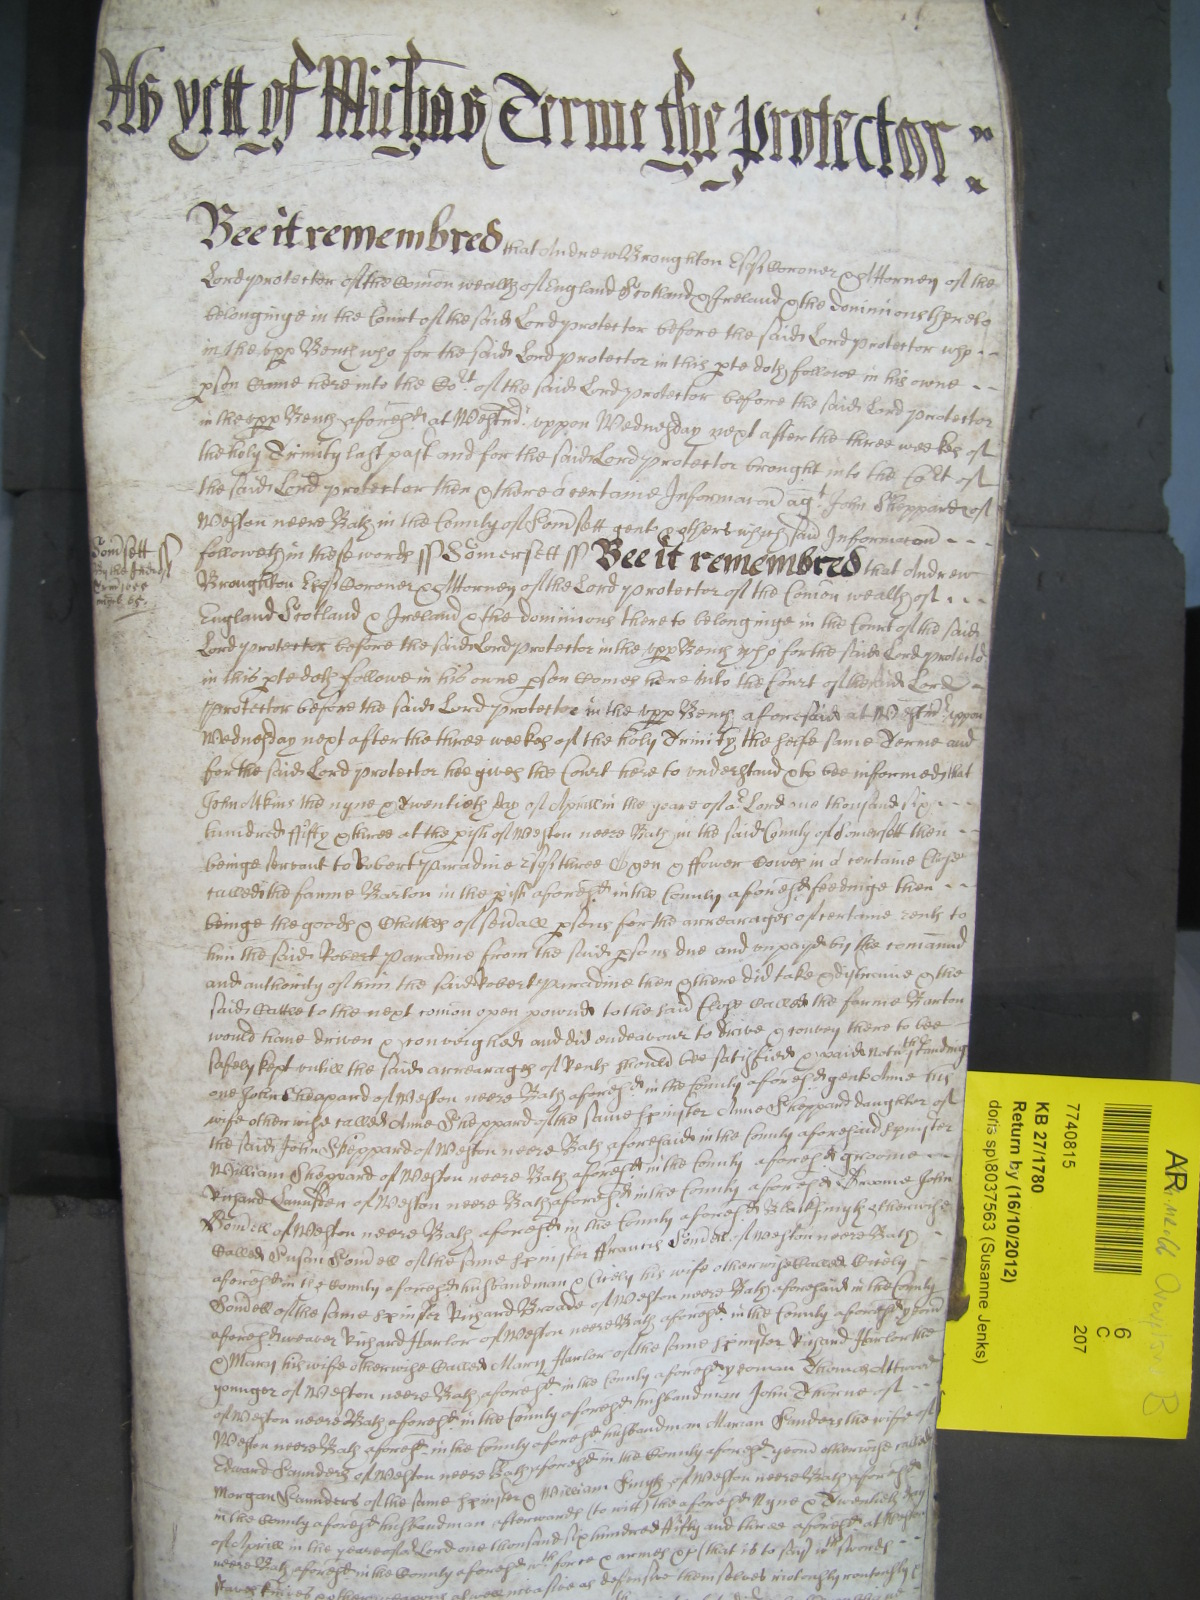 As yett of Michas Terme the Protector
Bee it remembred that Andrew Broughton Esqr Coroner & Attorney of the
Lord protector of the Comon wealth of England Scotland & Ireland & the dominions thereto
belonginge in the Court of the said Lord protector before the said Lord protector who
in the upp Bench who for the said Lord protector in this pte doth followe in his owne
pson Came here into the Cort of the said Lord protector before the said Lord protector
in the upp Bench aforesd at Westmr uppon Wednesday next after the three weekes of
the holy Trinity last past and for the said Lord protector brought into the Cort of
the said Lord protector then & there a certaine Informacon agt John Sheppard of
Weston neere Bath in the County of Somsett gent & others which said Informacon
followeth in these words ss Somersett ss Bee it remembred that Andrew
Somsett ss
Broughton Esqr Coroner & Attorney of the Lord protector of the Comon wealth of
England Scotland & Ireland & the dominions there to belonginge in the Court of the said
Lord protector before the said Lord protector in the upp Bench who for the said Lord protector
in this pte doth followe in his owne pson Comes here into the Court of the said Lord
protector before the said Lord protector in the upp Bench aforesaid at Westmr uppon
Wednesday next after the three weekes of the holy Trinity the selfe same Terme and
for the said Lord protector hee gives the Court here to understand & to bee informed that
John Atkins the nyne & Twentieth day of Aprill in the yeare of or Lord one thousand six
hundred ffifty & three at the pish of Weston neere Bath in the said County of Somersett then
beinge servant to Robert Paradine Esqr three Oxen & ffower Cowes in a certaine Close
called the farme Barton in the pish aforesd in the County aforesd feedinge then
beinge the goods & Chattles of sevall psons for the arrearages of certaine rents to
him the said Robert Paradine from the said psons due and unpayd by the comannd
and authority of him the said Robert Paradine then & there did take & distraine & the
said Cattle to the next comon open pownd to the said Close called the farme Barton
would have driven & conveighed and did endeavour to drive & convey there to bee
safely kept untill the said arrearages of Rents should bee satisfied & paid notwthstanding
one John Sheapard of Weston neere Bath aforesd in the County aforesd gent Anne his
wife otherwise called Anne Sheppard of the same spinster Anne Sheppard daughter of
the said John Sheppard of Weston neere Bath aforesaid in the County aforesaid spinster
William Sheppard of Weston neere Bath aforesd in the County aforesd groome
Richard of Weston neere Bath aforesd in the County aforesd John
of Weston neere Bath aforesd in the County aforesd Blacksmyth otherwise
Called Susan of the same spinster ffrancis of Weston neere Bath
aforesd in the County aforesd husbandman & Cicely his wife otherwise Called Cicely
of the same spinster Richard Broade of Weston neere Bath aforesaid in the County
aforesd weaver Richard Harlor of Weston neere Bath aforesd in the County aforesd
& Mary his wife otherwise Called Mary Harlor of the same spinster Richard Harlor the
younger of Weston neere Bath aforesd in the County aforesd yeoman Thomas Attwood
of Weston neere Bath aforesd in the County aforesd husbandman John Thorne of
Weston neere Bath aforesd in the County aforesd husbandman Marian Sanders the wife of
Edward Saunders of Weston neere Bath aforesd in the County aforesd otherwise called
Morgan Saunders of the same spinster & William Smyth of Weston neere Bath aforesd
in the County aforesd husbandman afterwards (to witt) the aforesd Nyne & Twentieth day
of Aprill in the yeare of or Lord one thousand six hundred ffifty and three aforesd at Weston
neere Bath aforesd in the County aforesd wth force & armes & (that is to say) wth swords
staves knives & other weapons as well invasive as defensive themselves riotously routously
AR
6
C
207
7740815
KB 27/1780
Return by (16/10/2012)
doris sp\8037563 (Susanne Jenks)